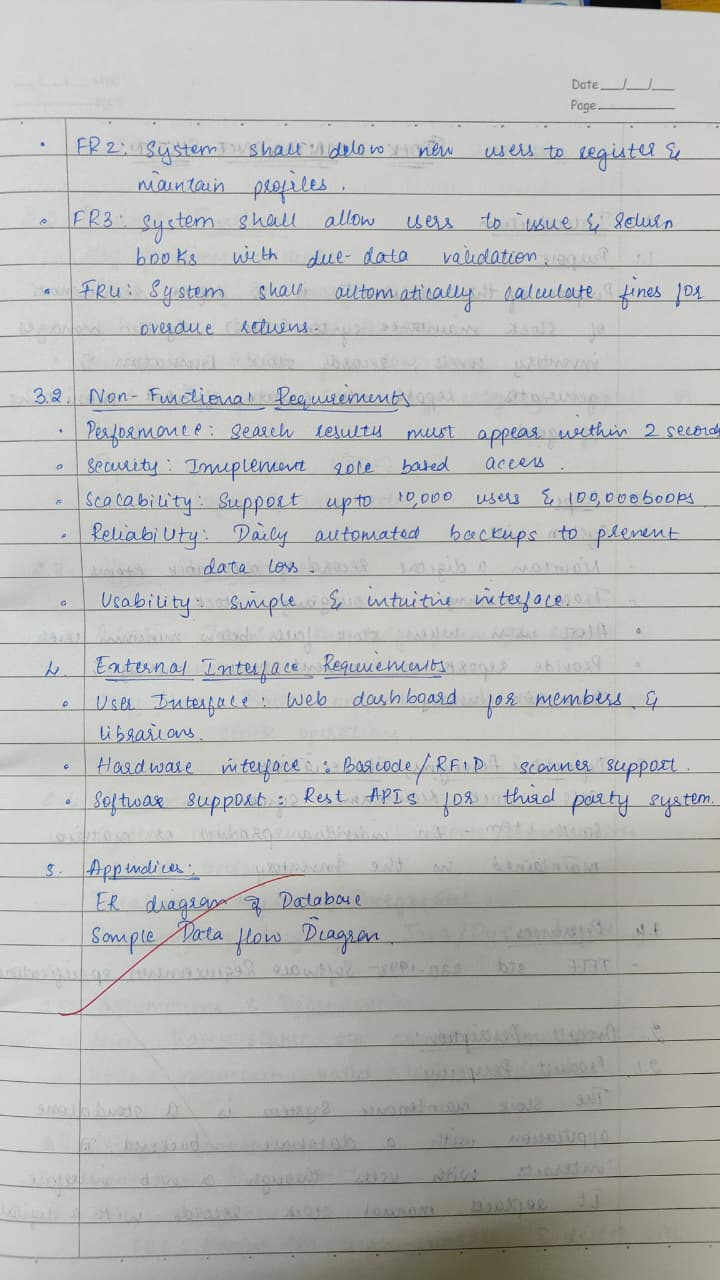 Date __/__/__
Page
• FR2: System shall allow new users to register &
maintain profiles.
• FR3: System shall allow users to issue & return
books with due-data validation.
• FR4: System shall automatically calculate fines for
overdue returns.
3.2. Non-Functional Requirements
• Performance: Search results must appear within 2 seconds
• Security: Implement role based access.
• Scalability: Support upto 10,000 users & 100,000 books.
• Reliability: Daily automated backups to prevent
data loss.
• Usability: Simple & intuitive interface.
4. External Interface Requirements
• User Interface: Web dashboard for members &
librarians.
• Hardware interface: Barcode/RFID scanner support.
• Software support: Rest APIs for third party system.
5. Appendices:
ER diagram of Database
Sample Data flow Diagram.